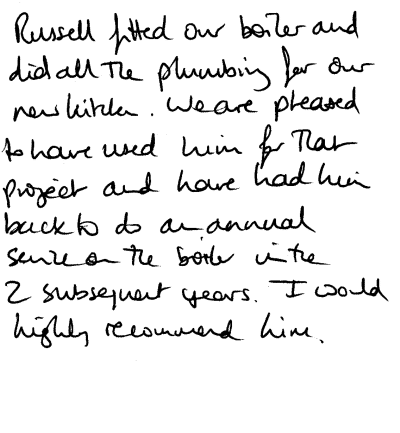 Russell fitted our boiler and
did all the plumbing for our
new kitchen. We are pleased
to have used him for that
project and have had him
back to do an annual
service on the boiler in the
2 subsequent years. I would
highly recommend him.